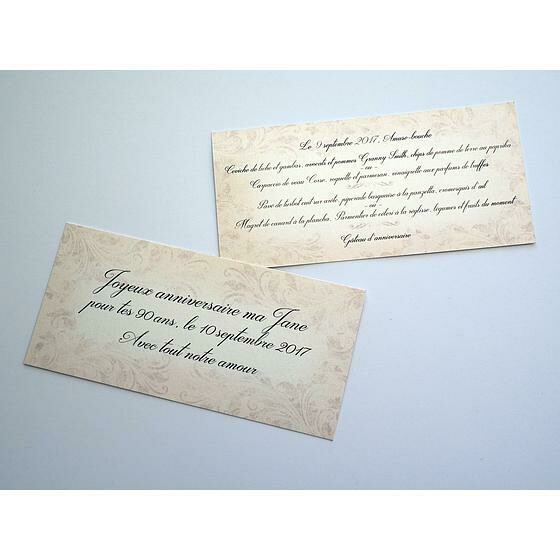 Le 9 septembre 2017, Amuse-bouche
Ceviche de lotte et gambas, avocats et pommes Granny Smith, chips de pomme de terre au paprika
- ou -
Carpaccio de veau Corse, roquette et parmesan, vinaigrette aux parfums de truffes
Pavé de turbot rôti sur arête, piperade basquaise à la panzella, cromesquis d'ail
- ou -
Magret de canard à la plancha, Parmentier de céleri à la réglisse, légumes et fruits du moment
Gâteau d'anniversaire
Joyeux anniversaire ma Jane
pour tes 90 ans, le 10 septembre 2017
Avec tout notre amour